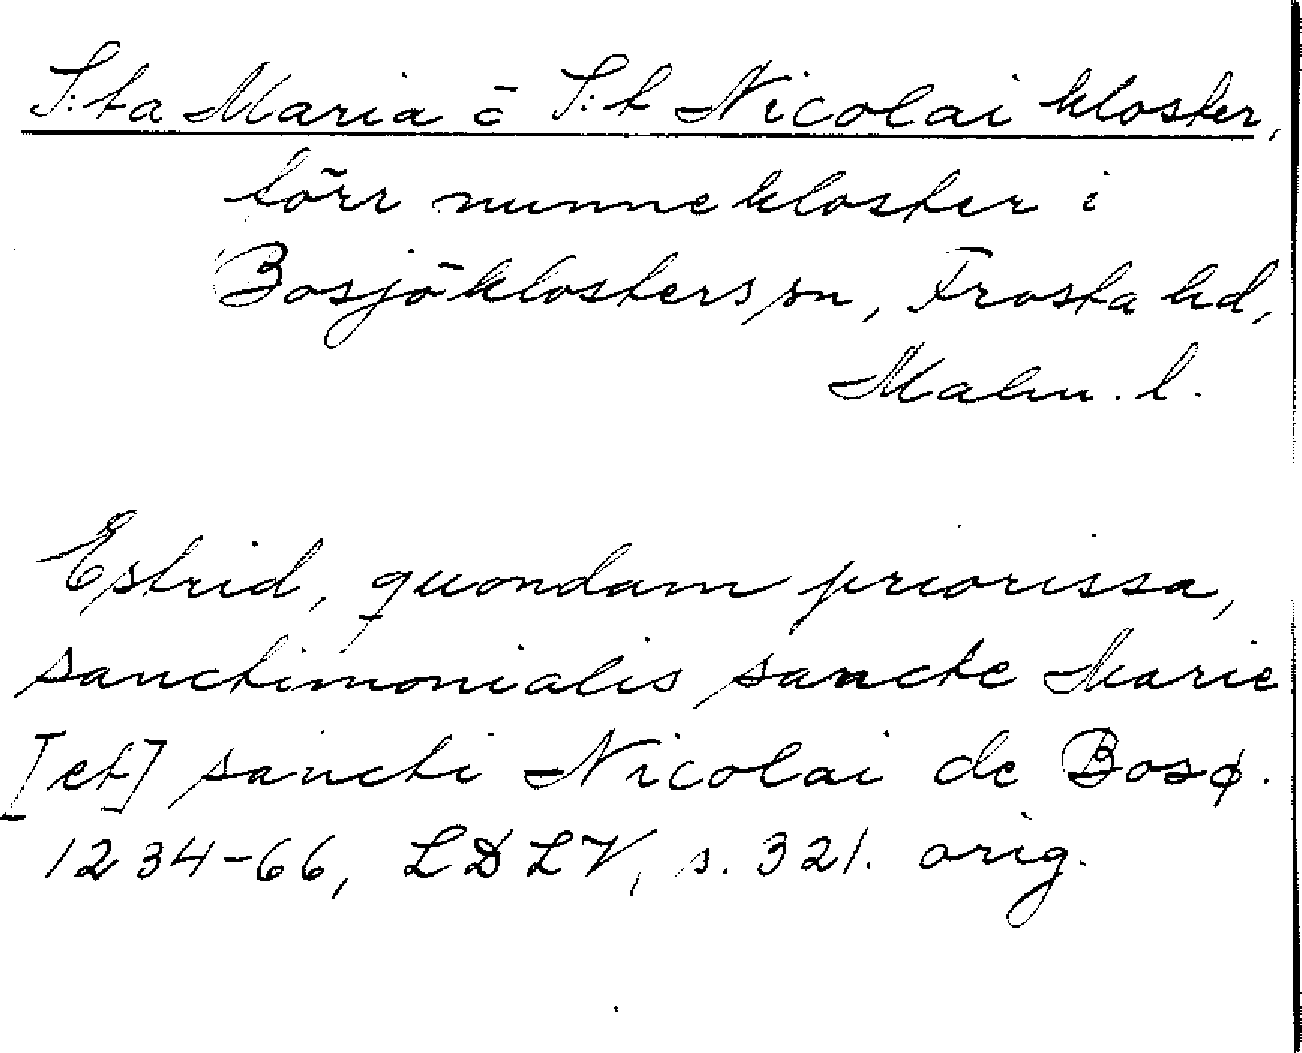 S:ta Maria o S:t Nicolai kloster,
förr nunnekloster i
Bosjöklosters sn, Frosta hd,
Malm. l.
Estrid, quondam priorissa,
sanctimonialis sancte Marie
[et] sancti Nicolai de Bosø.
1234-66, LDLV, s. 321. orig.